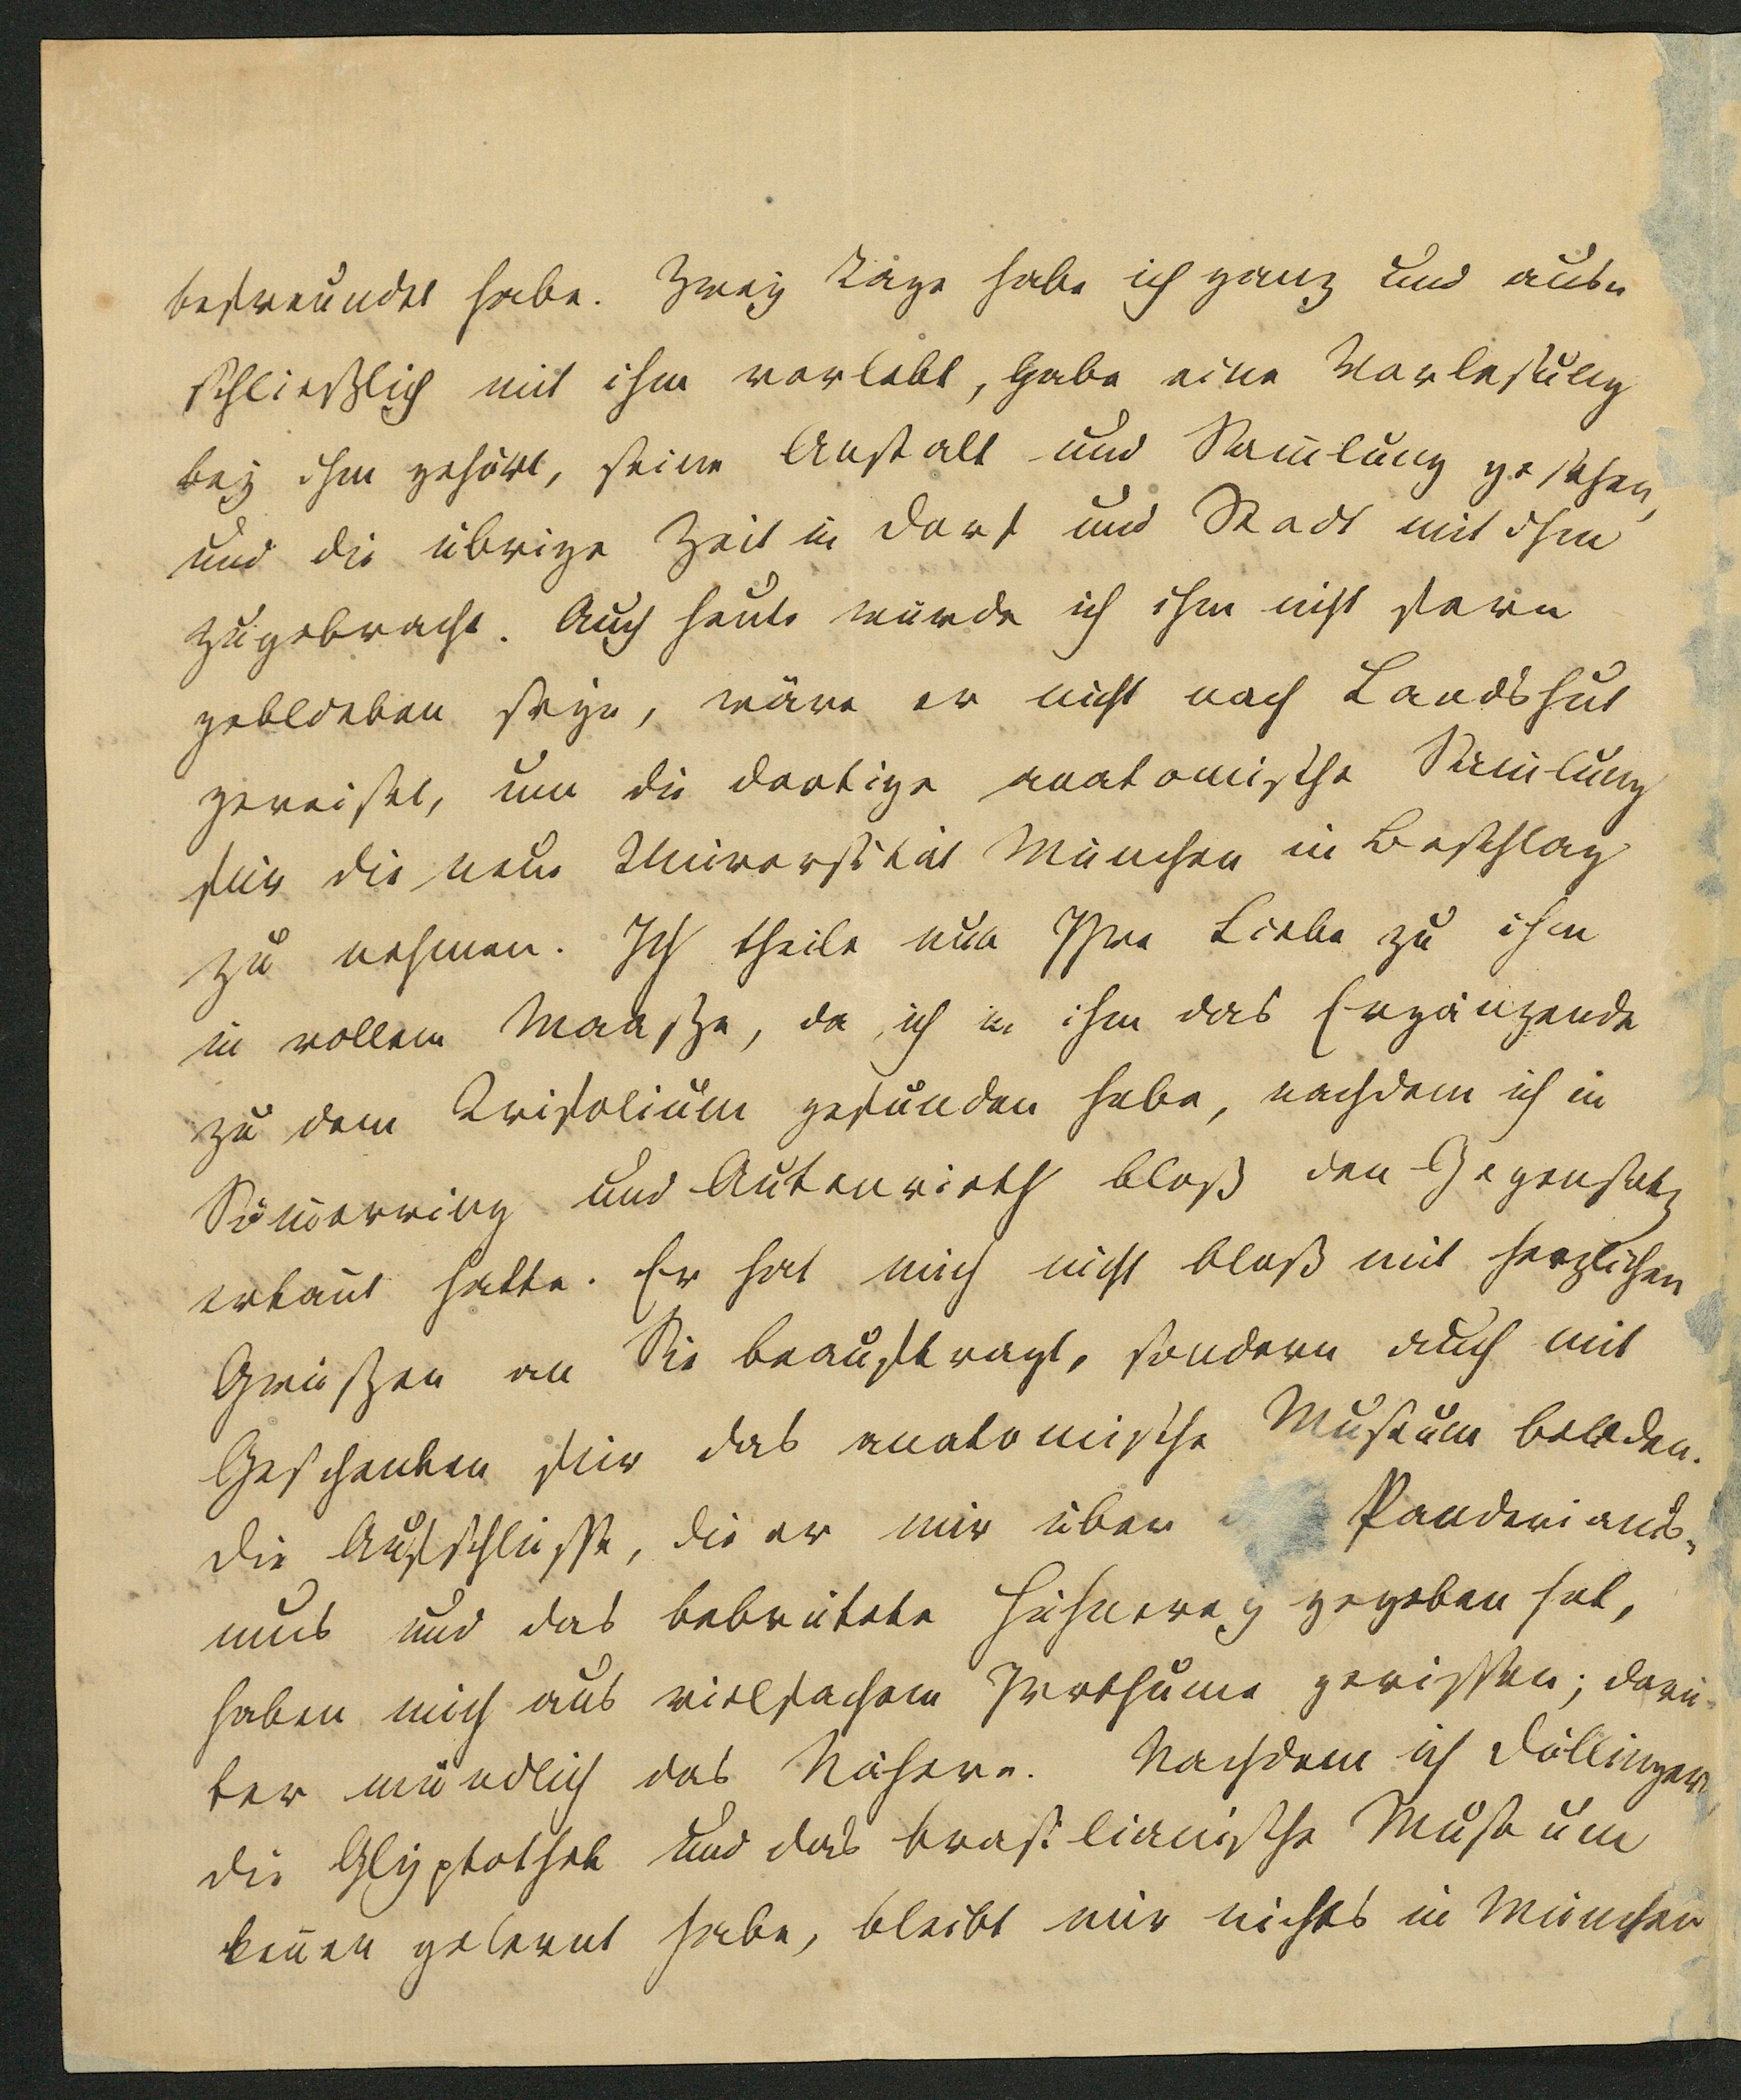 befreundet habe. Zwey Tage habe ich ganz und aus-
schließlich mit ihm verlebt, habe eine Vorlesung
bey ihm gehört, seine Anstalt und Sam̅lung gesehen,
und die übrige Zeit in Dorf und Stadt mit ihm
zugebracht. Auch heute würde ich ihm nicht fern
geblieben seyn, wäre er nicht nach Landshut
gereiset, um die dortige anatomische Sam̅lung
für die neue Universität München in Beschlag
zu nehmen. Ich theile nun Ihre Liebe zu ihm
in vollem Maaße, da ich in ihm das Ergänzende
zu dem Trifolium gefunden habe, nachdem ich in
Söm̅erring und Autenrieth bloß den Gegensatz
erkan̅t hatte. Er hat mich nicht bloß mit herzlichen
Grüßen an Sie beauftragt, sondern auch mit
Geschenken für das anatomische Museum beladen.
Die Aufschlüsse, die er mir über Panderianis-
mus und das bebrütete Hühnerey gegeben hat,
haben mich aus vielfachem Irrthume gerissen; darü-
ber mündlich das Nähere. Nachdem ich Döllinger,
die Glyptothek und das brasilianische Museum
ken̅en gelernt habe, bleibt mir nichts in München